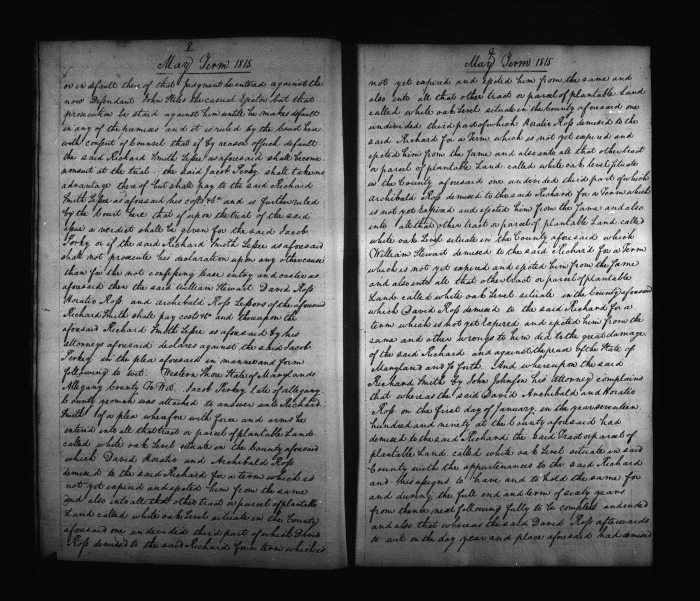 8
May Term 1815
or in default there of that Judgment be entered against the
now Defendant John Stiles the casual Ejector but that
prosecution be staid against him untill he makes default
in any of the premises and it is ruled by the Court here
with consent of Counsel that if by reason of such default
the said Richard Smith Lessee as aforesaid shall become
nonsuit at the trial the said Jacob Porkey shall take no
advantage there of but shall pay to the said Richard
Smith Lessee as aforesaid his costs &c and is further ruled
by the Court here that if upon the trial of the said
Issue a verdict shall be given for the said Jacob
Porkey or if the said Richard Smith Lessee as aforesaid
shall not prosecute his declaration upon any other cause
than for the not confessing lease entry and ouster as
aforesaid then the said William Stewart David Ross
Horatio Ross and archibald Ross Lessors of the aforesaid
Richard Smith shall pay costs &c and thereupon the
aforesaid Richard Smith Lessee as aforesaid by his
attorney aforesaid declares against the said Jacob
Porkey in the plea aforesaid in manner and form
following to wit Western Shore State of Maryland
Allegany County To Wit Jacob Porkey late of allegany
County yeoman was attached to answer unto Richard
Smith of a plea wherefore with force and arms he
entered into all that tract or parcel of plantable Land
called white oak Level situate in the County aforesaid
which David Horatio and Archibald Ross
demised to the said Richard for a term which is
not yet expired and ejected him from the same
and also into all that other tract or parcel of plantable
Land called white oak Level situate in the County
aforesaid one undivided third part of which David
Ross demised to the said Richard for a term which is
9
May Term 1815
not yet expired and ejected him from the same and
also into all that other tract or parcel of plantable Land
called white oak Level situate in the County aforesaid one
undivided third part of which Horatio Ross demised to the
said Richard for a Term which is not yet expired and
ejected him from the same and also into all that other tract
or parcel of plantable Land called white oak Level situate
in the County aforesaid one undivided third part of which
archibald Ross demised to the said Richard for a Term which
is not yet Expired and ejected him from the Same and also
into all that other tract or parcel of plantable Land called
white oak Level situate in the County aforesaid which
William Stewart demised to the said Richard for a Term
which is not yet expired and ejected him from the Same
and also into all that other tract or parcel of plantable
Land called white oak Level situate in the County aforesaid
which David Ross demised to the said Richard for a
term which is not yet expired and ejected him from the
same and other wrongs to him did to the great damage
of the said Richard and against the peace of the State of
Maryland and so forth And whereupon the said
Richard Smith by John Johnson his attorney complains
that whereas the said David Archibald and Horatio
Ross on the first day of January in the year seventeen
hundred and ninety at the County aforesaid had
demised to the said Richard the said Tract or parcel of
plantable Land called white oak Level situate in said
County with the appurtenances to the said Richard
and his assigns to have and to hold the same for
and during the full end and term of sixty years
from thence next following fully to be complete and ended
and also that whereas the said David Ross afterwards
to wit on the day year and place aforesaid had demised